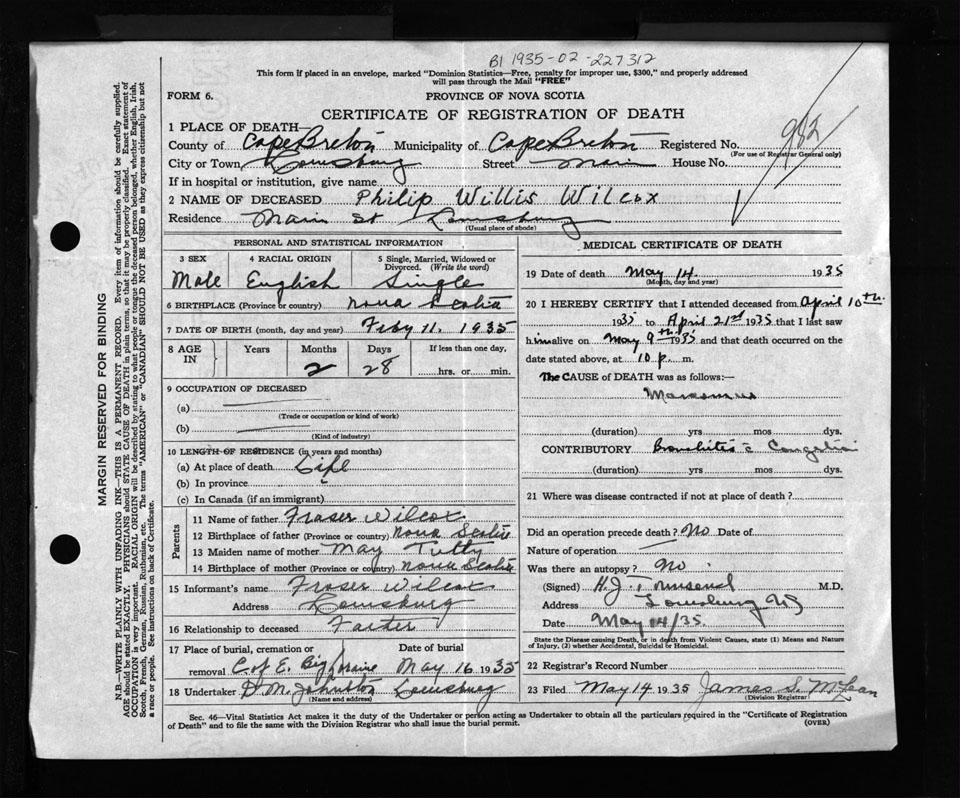 B1 1935-02-227312
This form if placed in an envelope, marked "Dominion Statistics—Free, penalty for improper use, $300," and properly addressed
will pass through the Mail "FREE"
FORM 6. PROVINCE OF NOVA SCOTIA
CERTIFICATE OF REGISTRATION OF DEATH
1 PLACE OF DEATH—
County of Cape Breton Municipality of Cape Breton Registered No. 982
(For use of Registrar General only)
City or Town Louisburg Street Main House No.
If in hospital or institution, give name
2 NAME OF DECEASED Philip Willis Wilcox
Residence Main St Louisburg
(Usual place of abode)
PERSONAL AND STATISTICAL INFORMATION
3 SEX 4 RACIAL ORIGIN 5 Single, Married, Widowed or
Divorced. (Write the word)
Male English Single
6 BIRTHPLACE (Province or country) Nova Scotia
7 DATE OF BIRTH (month, day and year) Feby 11. 1935
8 AGE IN Years Months Days If less than one day,
2 28 hrs. or min.
9 OCCUPATION OF DECEASED
(a)
(Trade or occupation or kind of work)
(b)
(Kind of industry)
10 LENGTH OF RESIDENCE (in years and months)
(a) At place of death Life
(b) In province
(c) In Canada (if an immigrant)
Parents
11 Name of father Fraser Wilcox
12 Birthplace of father (Province or country) Nova Scotia
13 Maiden name of mother May Tutty
14 Birthplace of mother (Province or country) Nova Scotia
15 Informant's name Fraser Wilcox
Address Louisburg
16 Relationship to deceased Father
17 Place of burial, cremation or Date of burial
removal C of E. Big Loraine May 16. 1935
18 Undertaker D. M. Johnston Louisburg
(Name and address)
MEDICAL CERTIFICATE OF DEATH
19 Date of death May 14 1935
(Month, day and year)
20 I HEREBY CERTIFY that I attended deceased from April 10th
1935 to April 21st 1935 that I last saw
him alive on May 9th 1935 and that death occurred on the
date stated above, at 10 p. m.
The CAUSE of DEATH was as follows:—
Marasmus
(duration) yrs mos dys.
CONTRIBUTORY Bronchitis c Congestion
(duration) yrs mos dys.
21 Where was disease contracted if not at place of death?
Did an operation precede death? No Date of
Nature of operation
Was there an autopsy? No
(Signed) H. J. Townsend M.D.
Address Louisburg NS
Date May 14/35.
State the Disease causing Death, or in death from Violent Causes, state (1) Means and Nature
of Injury, (2) whether Accidental, Suicidal or Homicidal.
22 Registrar's Record Number
23 Filed May 14 1935 James S. McLean
(Division Registrar)
Sec. 46—Vital Statistics Act makes it the duty of the Undertaker or person acting as Undertaker to obtain all the particulars required in the "Certificate of Registration
of Death" and to file the same with the Division Registrar who shall issue the burial permit. (OVER)
MARGIN RESERVED FOR BINDING
N.B.—WRITE PLAINLY WITH UNFADING INK—THIS IS A PERMANENT RECORD. Every item of information should be carefully supplied.
AGE should be stated EXACTLY. PHYSICIANS should STATE CAUSE OF DEATH in plain terms, so that it may be properly classified. Exact statement of
OCCUPATION is very important. RACIAL ORIGIN will be described by stating to what people or tongue the deceased person belonged, whether English, Irish,
Scotch, French, German, Russian, Ruthenian, etc. The terms "AMERICAN" or "CANADIAN" SHOULD NOT BE USED as they express citizenship but not
a race or people. See instructions on back of Certificate.